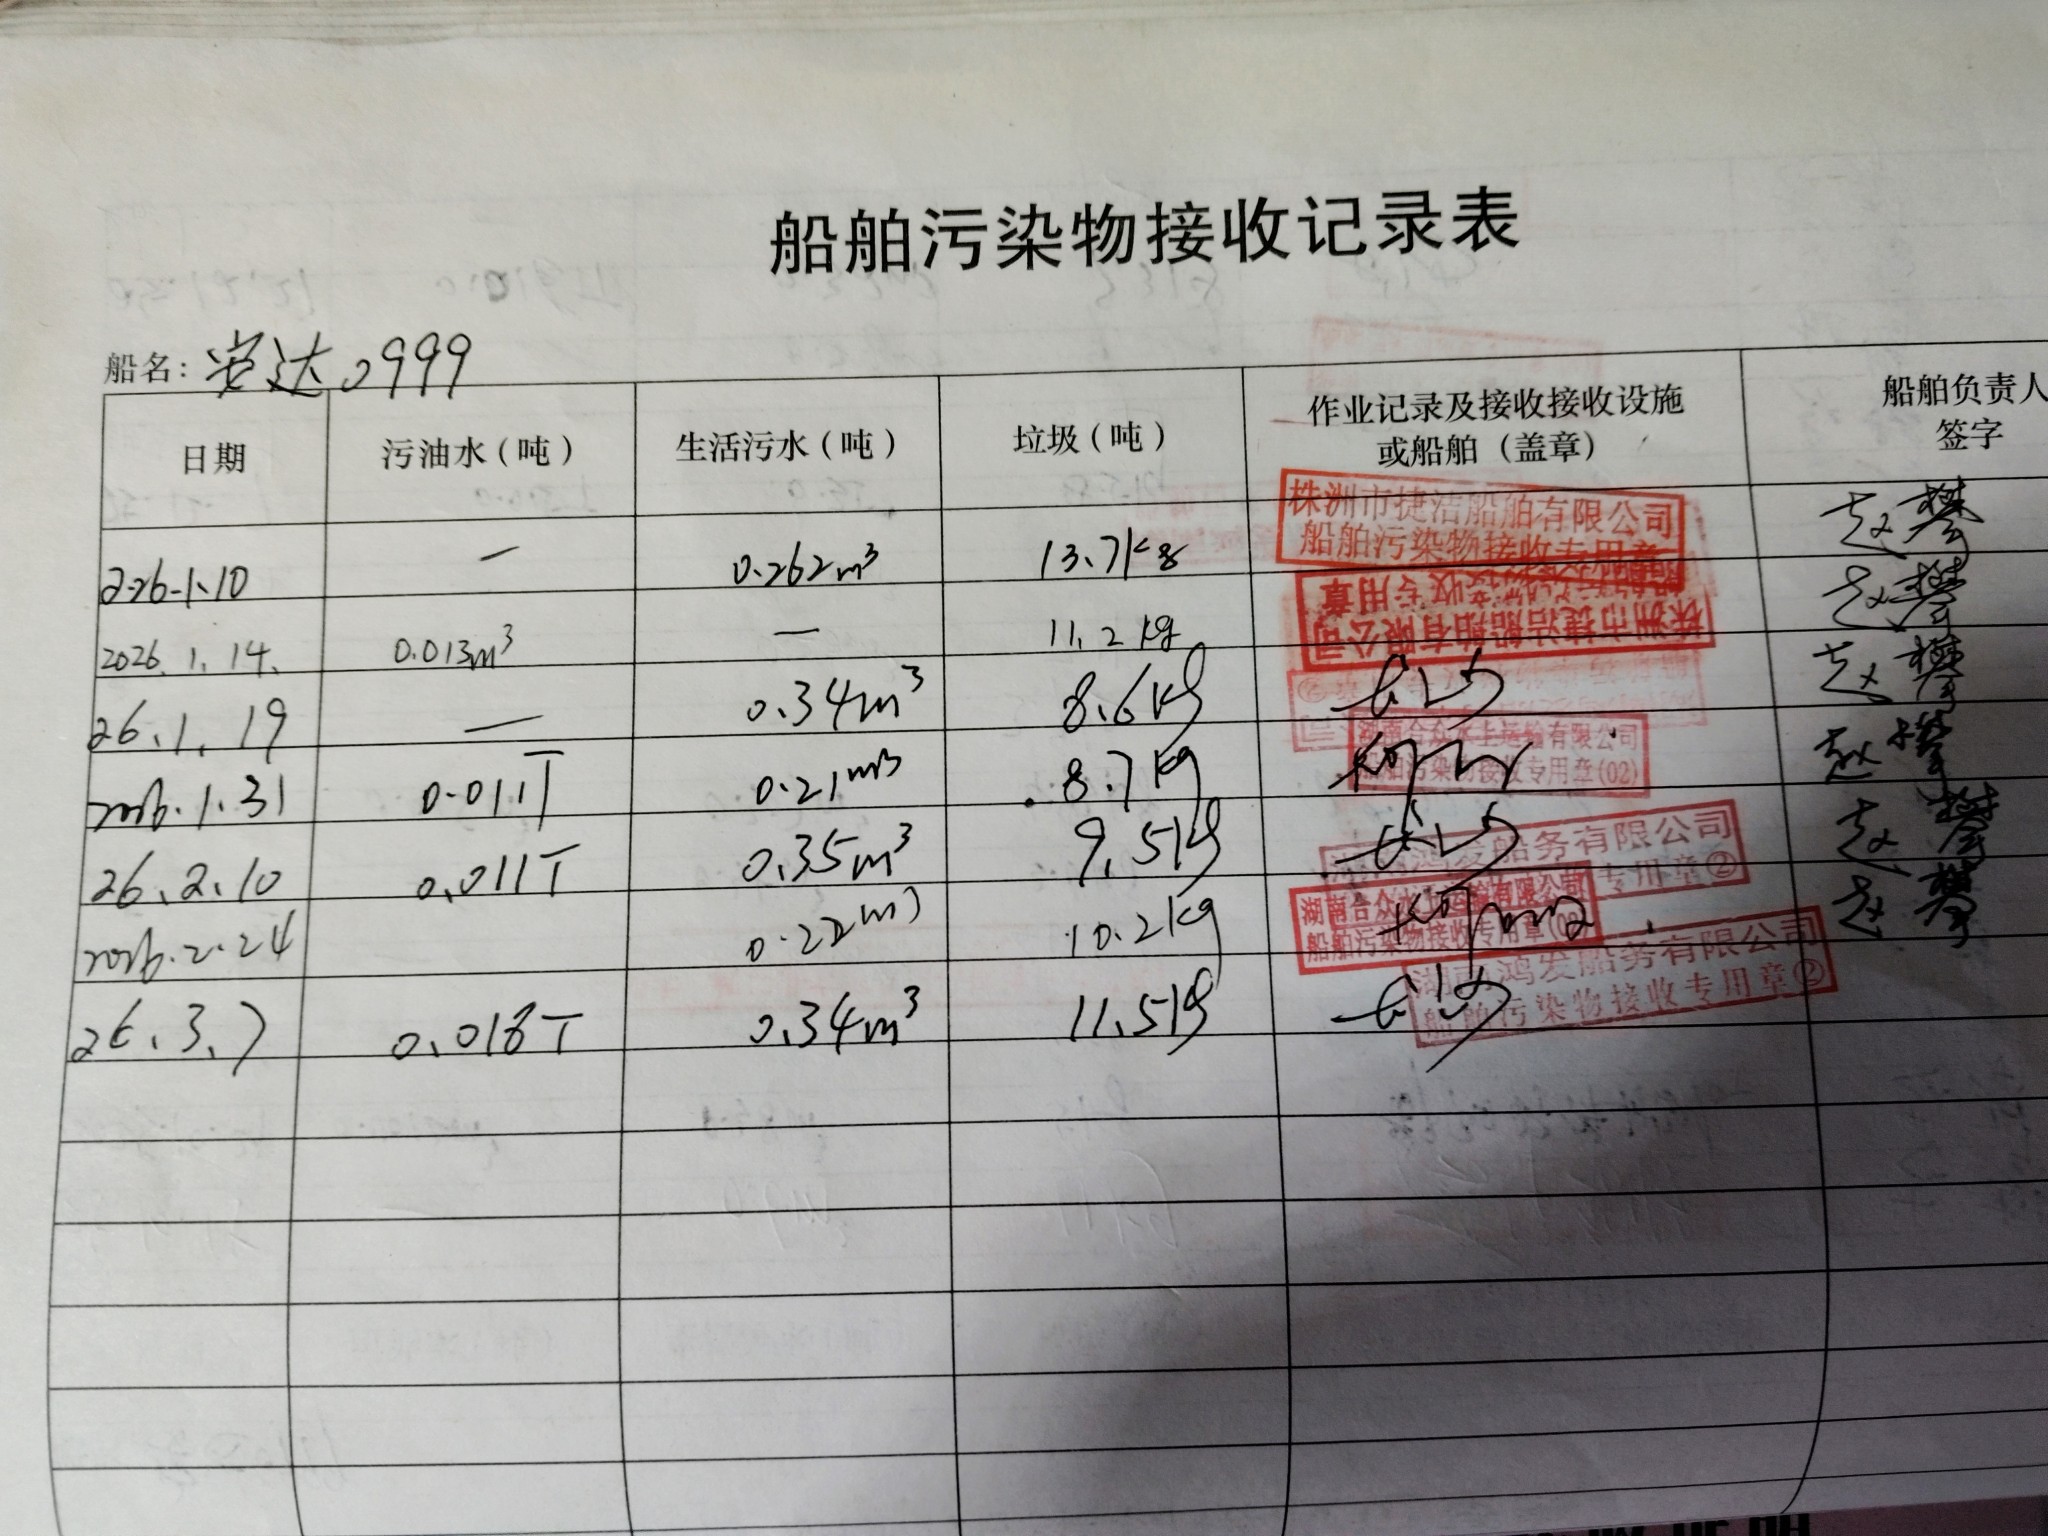 船舶污染物接收记录表
船名: 安达0999
日期 污油水(吨) 生活污水(吨) 垃圾(吨) 作业记录及接收接收设施或船舶(盖章) 船舶负责人签字
2026.1.10 — 0.262m³ 13.7kg 株洲市捷洁船舶有限公司 船舶污染物接收专用章
2026.1.14. 0.013m³ — 11.2kg 株洲市捷洁船舶有限公司 船舶污染物接收专用章
26.1.19 — 0.34m³ 8.6kg 长沙
2026.1.31 0.011T 0.21m³ 8.7kg 湖南合众水上运输有限公司 船舶污染物接收专用章(02)
26.2.10 0.011T 0.35m³ 9.5kg 长沙 鸿发船务有限公司 专用章②
2026.2.24 0.22m³ 10.2kg 湖南合众水上运输有限公司 船舶污染物接收专用章
26.3.7 0.018T 0.34m³ 11.5kg 长沙 湖南鸿发船务有限公司 船舶污染物接收专用章②